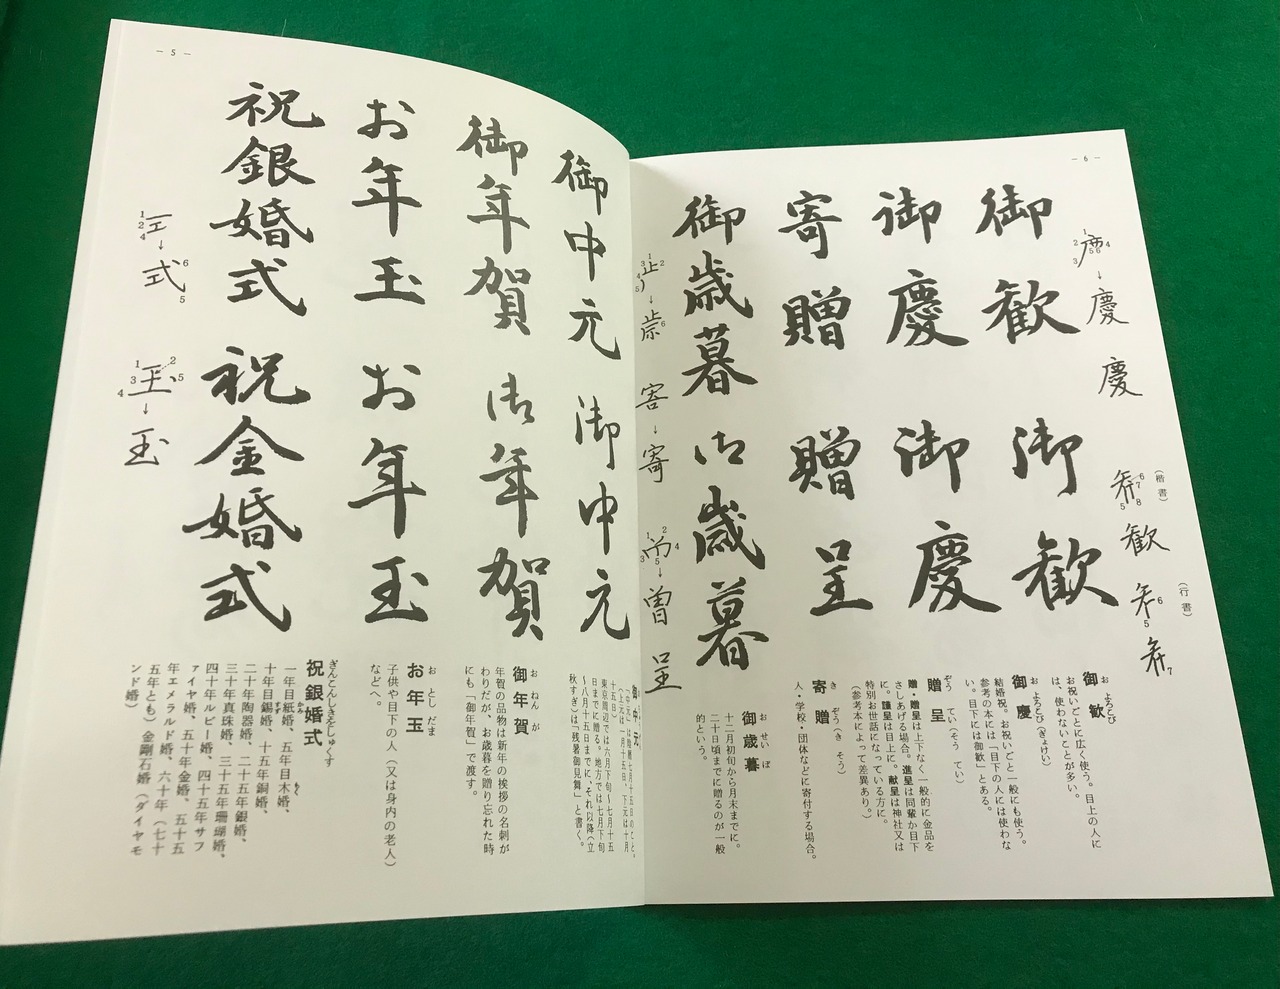 — 6 —
慶
慶
(楷書)
歓
(行書)
御歓 御歓
御慶 御慶
寄贈 贈呈
御歳暮 御歳暮
寄
曽
呈
御歓
お よろこび
お祝いごとに広く使う。目上の人に
は、使わないことが多い。
御慶
お よろこび(ぎょけい)
結婚祝。お祝いごと一般にも使う。
参考の本には「目下の人には使わな
い。目下には御歓」とある。
贈呈
ぞう てい(そう てい)
贈・贈呈は上下なく一般的に金品を
さしあげる場合。進呈は同輩か目下
に。謹呈は目上に。献呈は神社又は
特別お世話になっている方に。
(参考本によって差異あり。)
寄贈
き ぞう(き そう)
人・学校・団体などに寄付する場合。
御歳暮
お せい ぼ
十二月初旬から月末までに。
二十日頃までに贈るのが一般
的という。
— 5 —
御中元 御中元
御年賀 御年賀
お年玉 お年玉
祝銀婚式 祝金婚式
式
玉
御中元
(上元は一月十五日、下元は十月
十五日)
東京周辺では六月下旬〜七月十五
日までに贈る。地方では七月下旬
〜八月十五日までに、それ以降(立
秋すぎ)は「残暑御見舞」と書く。
御年賀
お ねん が
年賀の品物は新年の挨拶の名刺が
わりだが、お歳暮を贈り忘れた時
にも「御年賀」で渡す。
お年玉
お とし だま
子供や目下の人(又は身内の老人)
などへ。
祝銀婚式
ぎんこんしきをしゅくす
一年目紙婚、五年目木婚、
十年目錫婚、十五年銅婚、
二十年陶器婚、二十五年銀婚、
三十年真珠婚、三十五年珊瑚婚、
四十年ルビー婚、四十五年サフ
ァイヤ婚、五十年金婚、五十五
年エメラルド婚、六十年(七十
五年とも)金剛石婚(ダイヤモ
ンド婚)